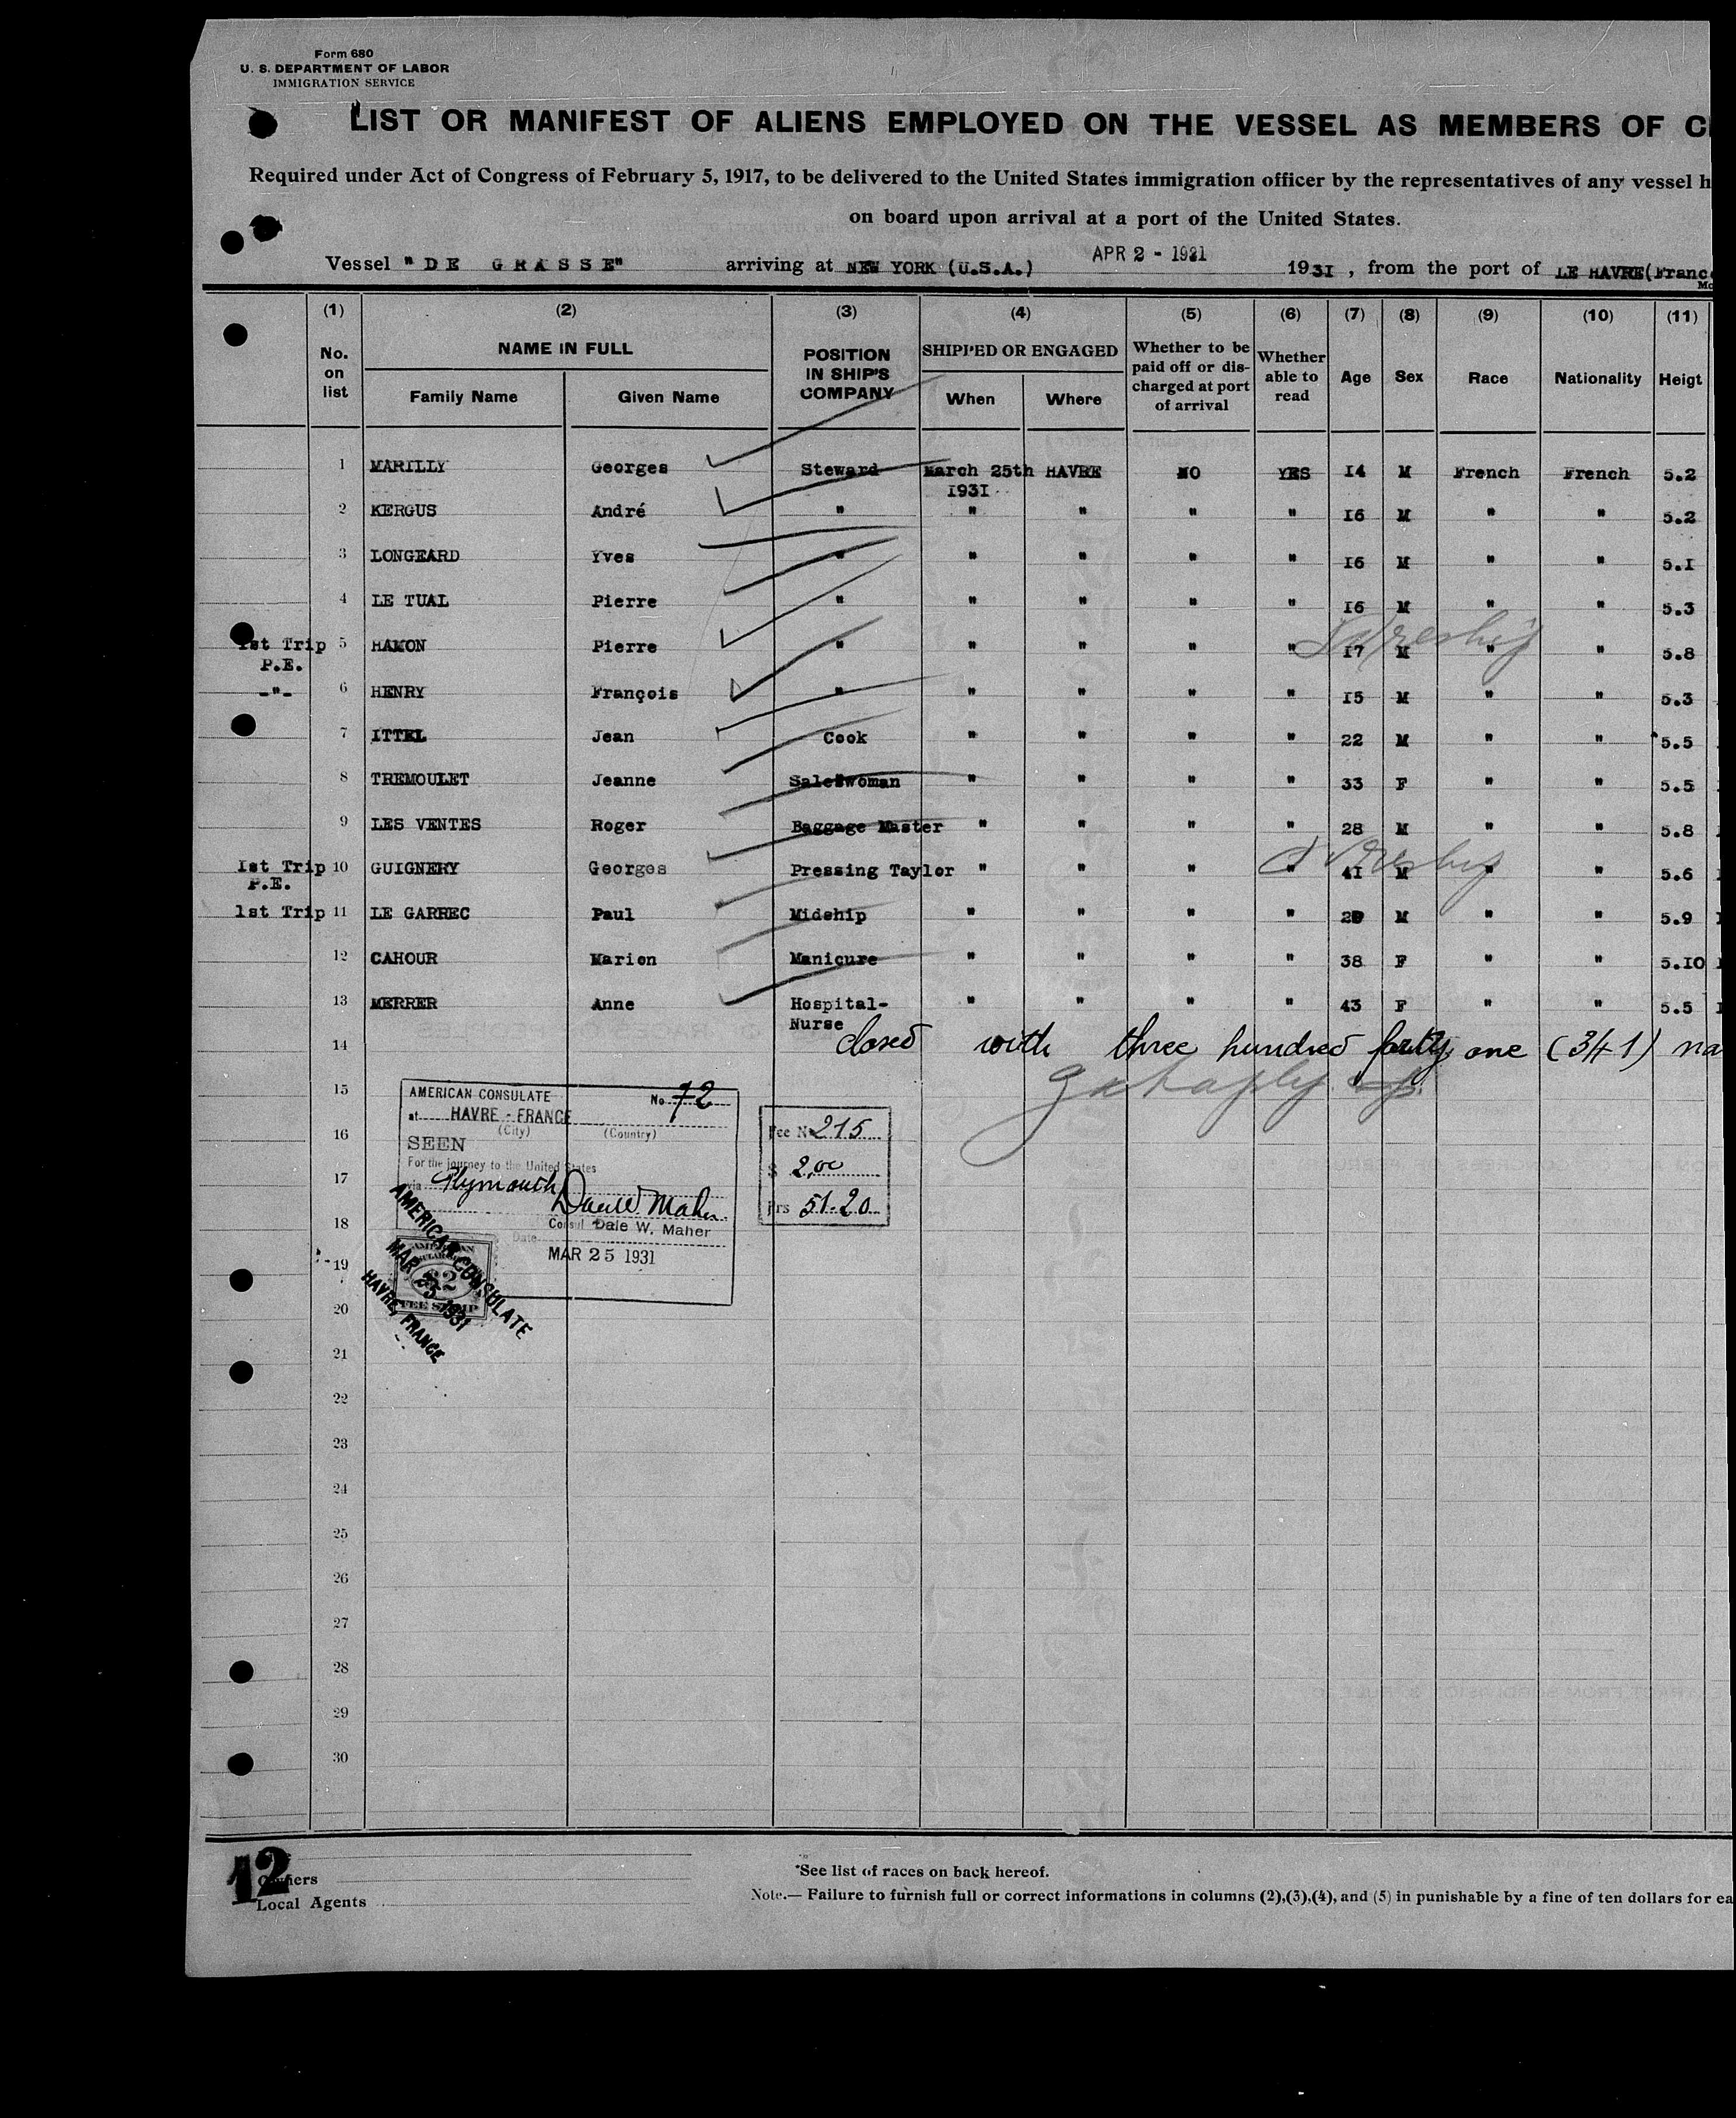 Form 680
U. S. DEPARTMENT OF LABOR
IMMIGRATION SERVICE
LIST OR MANIFEST OF ALIENS EMPLOYED ON THE VESSEL AS MEMBERS OF C
Required under Act of Congress of February 5, 1917, to be delivered to the United States immigration officer by the representatives of any vessel h
on board upon arrival at a port of the United States.
Vessel "DE GRASSE" arriving at NEW YORK (U.S.A.) APR 2 - 1931 1931 , from the port of LE HAVRE(Franc
(1) (2) (3) (4) (5) (6) (7) (8) (9) (10) (11)
No. on list NAME IN FULL Family Name Given Name POSITION IN SHIP'S COMPANY SHIPPED OR ENGAGED When Where Whether to be paid off or discharged at port of arrival Whether able to read Age Sex Race Nationality Heigt
1 MARILLY Georges Steward March 25th 1931 HAVRE NO YES 14 M French French 5.2
2 KERGUS André " " " " " 16 M " " 5.2
3 LONGEARD Yves " " " " " 16 M " " 5.1
4 LE TUAL Pierre " " " " " 16 M " " 5.3
1st Trip P.E. 5 HAMON Pierre " " " " " 17 M " " 5.8
-"- 6 HENRY François " " " " " 15 M " " 5.3
7 ITTEL Jean Cook " " " " 22 M " " 5.5
8 TREMOULET Jeanne Saleswoman " " " " 33 F " " 5.5
9 LES VENTES Roger Baggage Master " " " " 28 M " " 5.8
1st Trip P.E. 10 GUIGNERY Georges Pressing Taylor " " " " 41 M " " 5.6
1st Trip 11 LE GARREC Paul Midship " " " " M " " 5.9
12 CAHOUR Marion Manicure " " " " 38 F " " 5.10
13 MERRER Anne Hospital-Nurse " " " " 43 F " " 5.5
14 closed with three hundred forty one (341) na
15
16
17
18
19
20
21
22
23
24
25
26
27
28
29
30
AMERICAN CONSULATE No. 72
at HAVRE - FRANCE
(City) (Country)
SEEN
For the journey to the United States
via Plymouth
Dale W. Maher
Consul Dale W. Maher
Date MAR 25 1931
Fee No 215
$ 2,00
Frs 51.20
AMERICAN CONSULATE
MAR 25 1931
HAVRE, FRANCE
12
Owners
Local Agents
*See list of races on back hereof.
Note.— Failure to furnish full or correct informations in columns (2),(3),(4), and (5) in punishable by a fine of ten dollars for ea